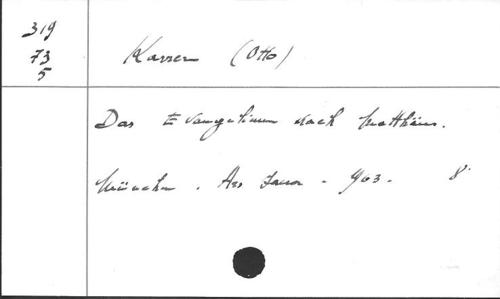 319
73
5
Karrer (Otto)
Das Evangelium nach Matthäus.
München. Ars sacra - 963 - 8°